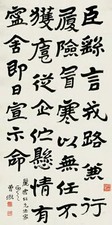 臣繇言戎路兼行
履險冒寒以無任不
獲扈從企懸情有
寧舍即日宣示命